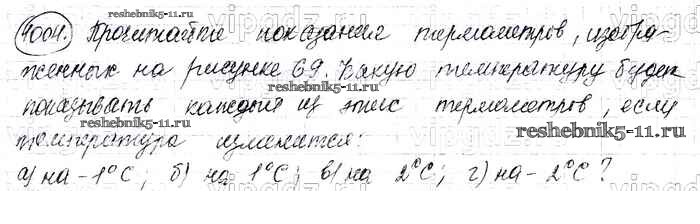 1004. Прочитайте показания термометров, изобра
женных на рисунке 69. Какую температуру будет
показывать каждый из этих термометров, если
температура изменится:
а) на -1°С; б) на 1°С; в) на 2°С; г) на -2°С?
reshebnik5-11.ru
reshebnik5-11.ru
reshebnik5-11.ru
reshebnik5-11.ru